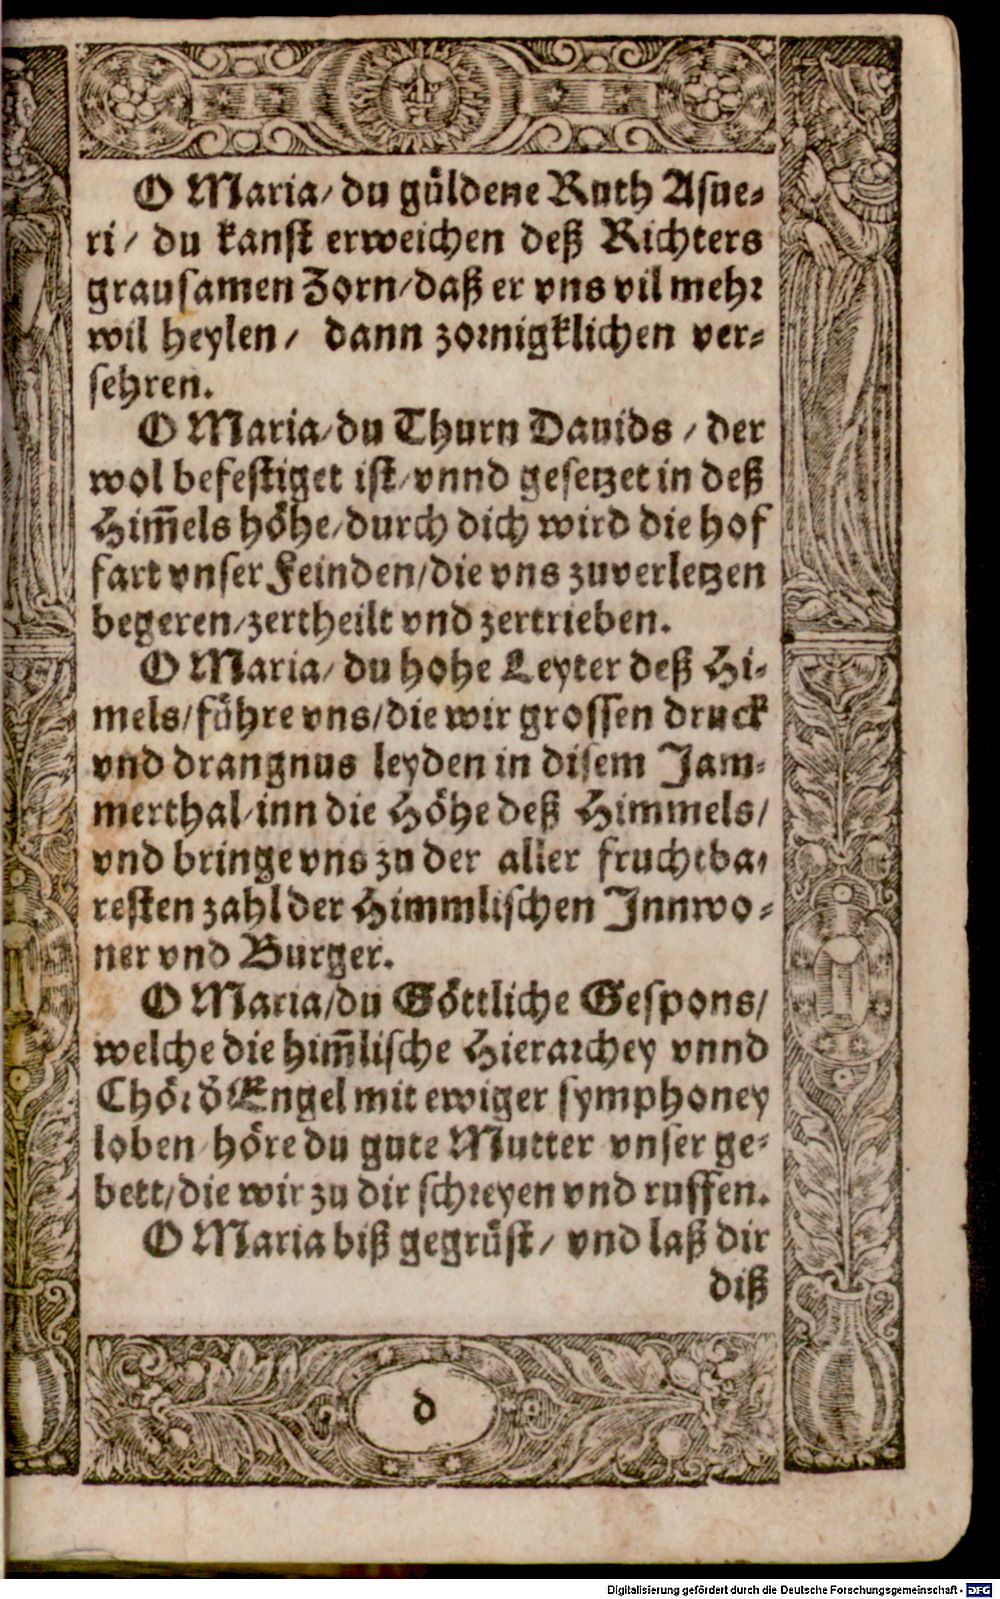 O Maria/ du guͤldene Ruth Asue-
ri/ du kanst erweichen deß Richters
grausamen Zorn/daß er vns vil mehr
wil heylen/ dann zornigklichen ver-
sehren.
O Maria/du Thurn Dauids / der
wol befestiget ist/vnnd gesetzet in deß
Him̅els hoͤhe/durch dich wird die hof
fart vnser Feinden/die vns zuverletzen
begeren/zertheilt vnd zertrieben.
O Maria/ du hohe Leyter deß Hi-
mels/fuͤhre vns/die wir grossen druck
vnd drangnus leyden in disem Jam-
merthal/inn die Hoͤhe deß Himmels/
vnd bringe vns zu der aller fruchtba-
resten zahl der Himmlischen Innwo-
ner vnd Burger.
O Maria/du Goͤttliche Gespons/
welche die him̅lische Hierarchey vnnd
Choͤr d̕ Engel mit ewiger symphoney
loben/hoͤre du gute Mutter vnser ge-
bett/die wir zu dir schreyen vnd ruffen.
O Maria biß gegruͤst/ vnd laß dir
diß
d
Digitalisierung gefördert durch die Deutsche Forschungsgemeinschaft - DFG